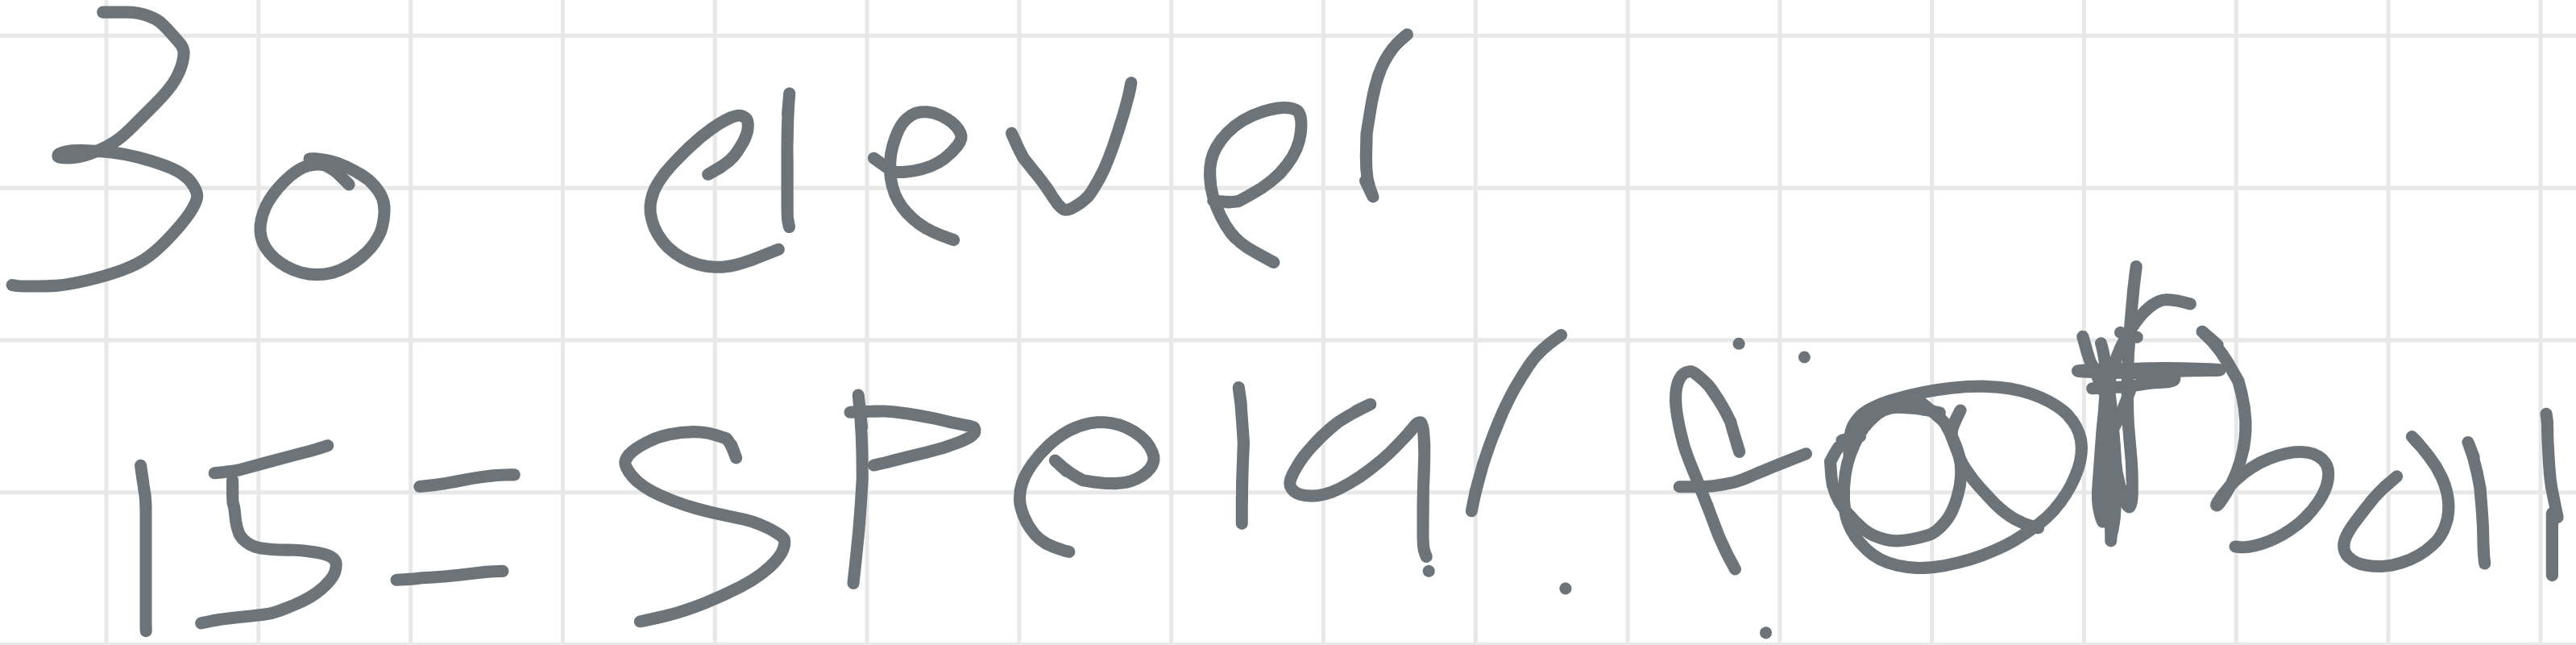 30 elever
15 = spelar fotboll